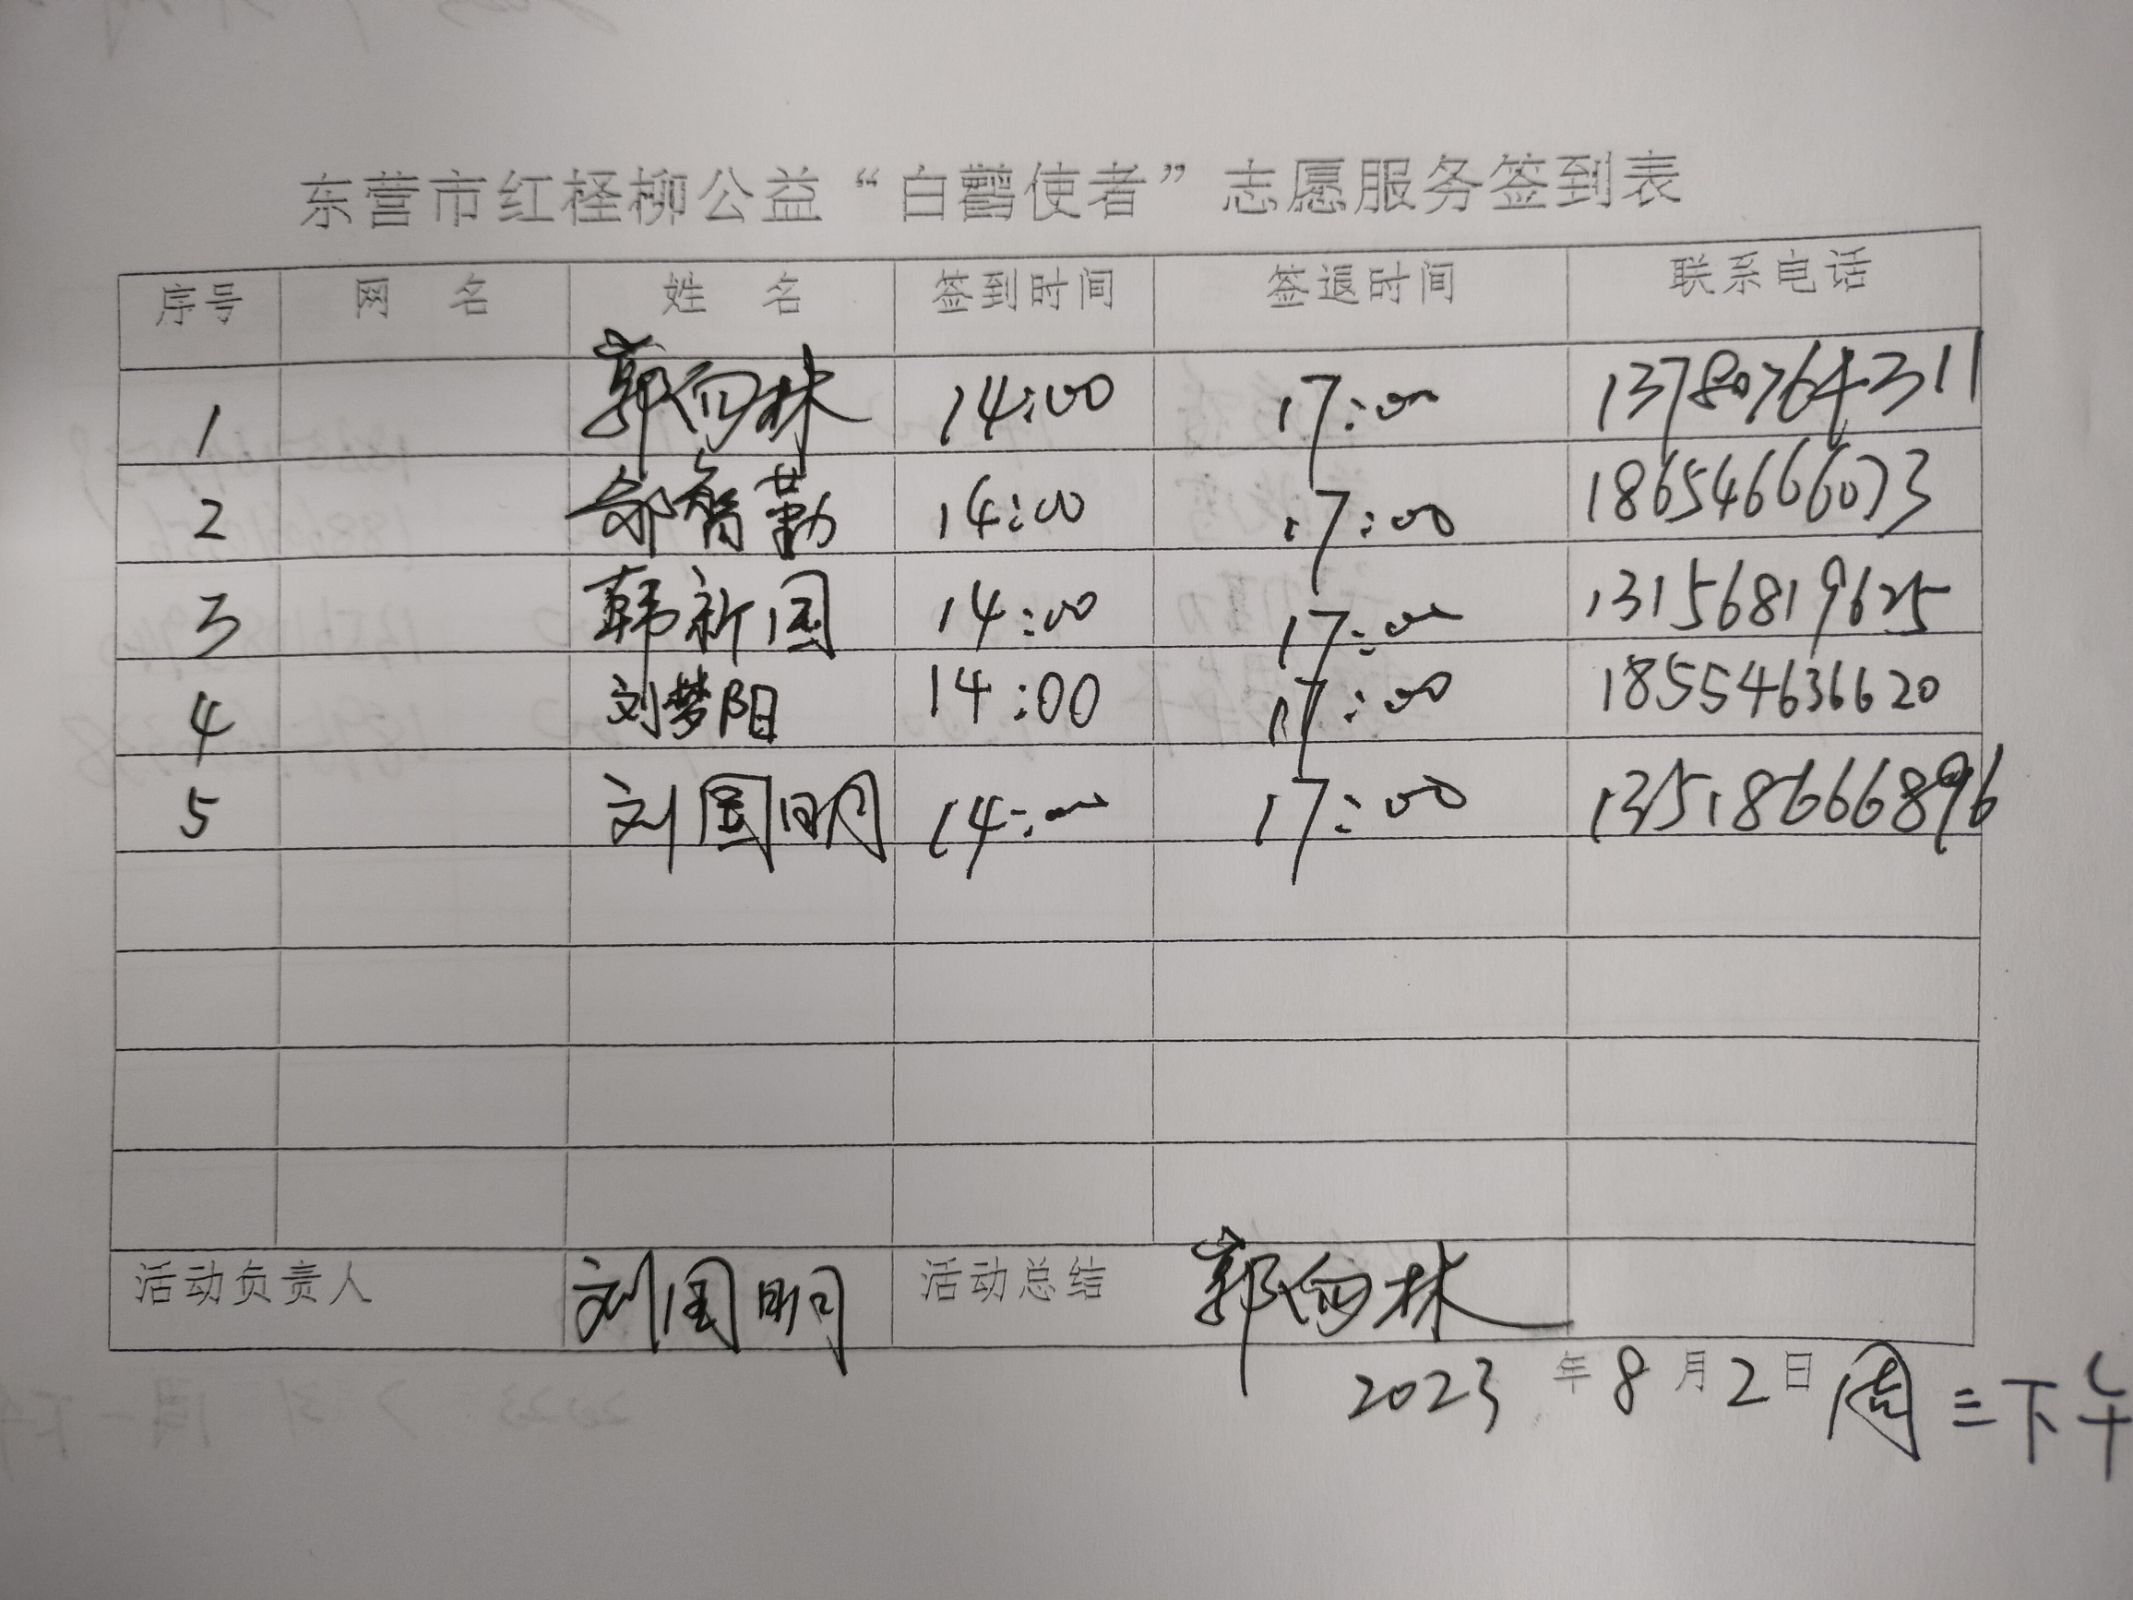 东营市红柽柳公益“白鹳使者”志愿服务签到表
序号 网 名 姓 名 签到时间 签退时间 联系电话
1 郭向林 14:00 17:00 13780764311
2 勤 14:00 17:00 18654666073
3 韩新国 14:00 17:00 13156819625
4 刘梦阳 14:00 17:00 18554636620
5 刘国明 14:00 17:00 13518666896
活动负责人 刘国明 活动总结 郭向林
2023年8月2日周三下午